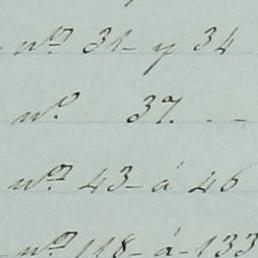 - nos 31- y 34
no. 37. - -
nos 43- á 46
- nos 118- á -133